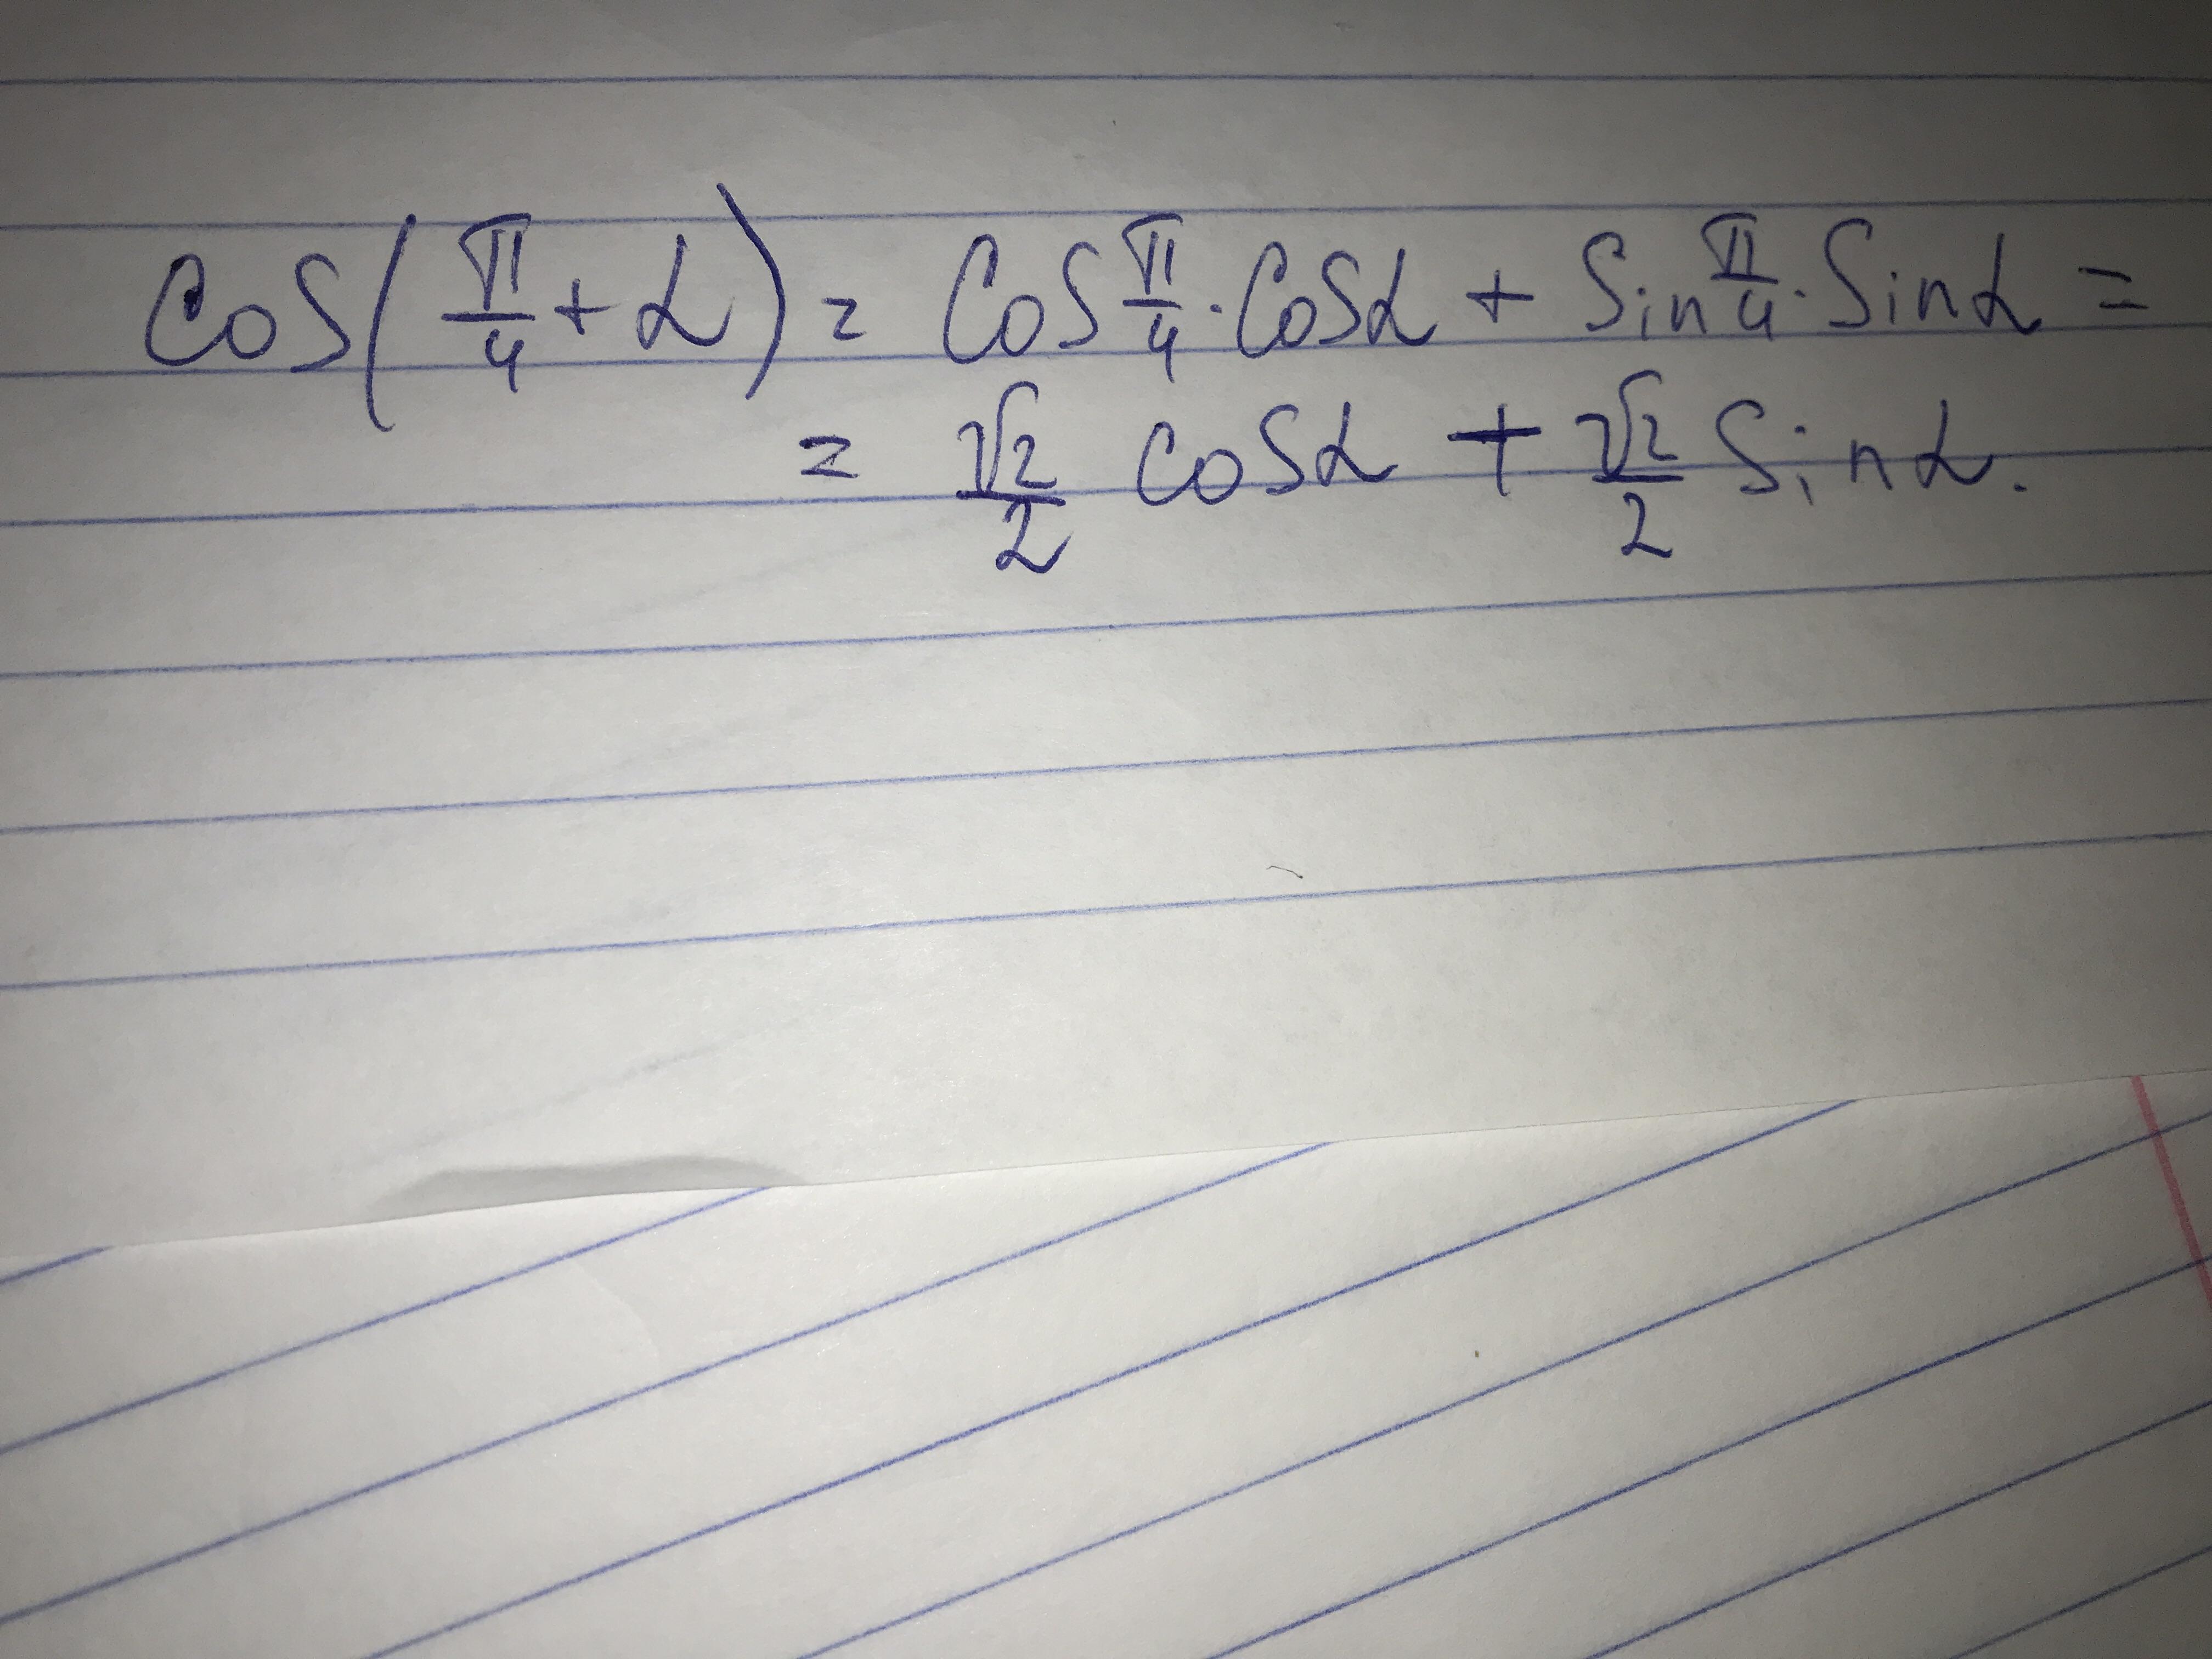 cos(π/4 + α) = cos π/4 · cosα + sin π/4 · sinα =
= √2/2 cosα + √2/2 sinα.